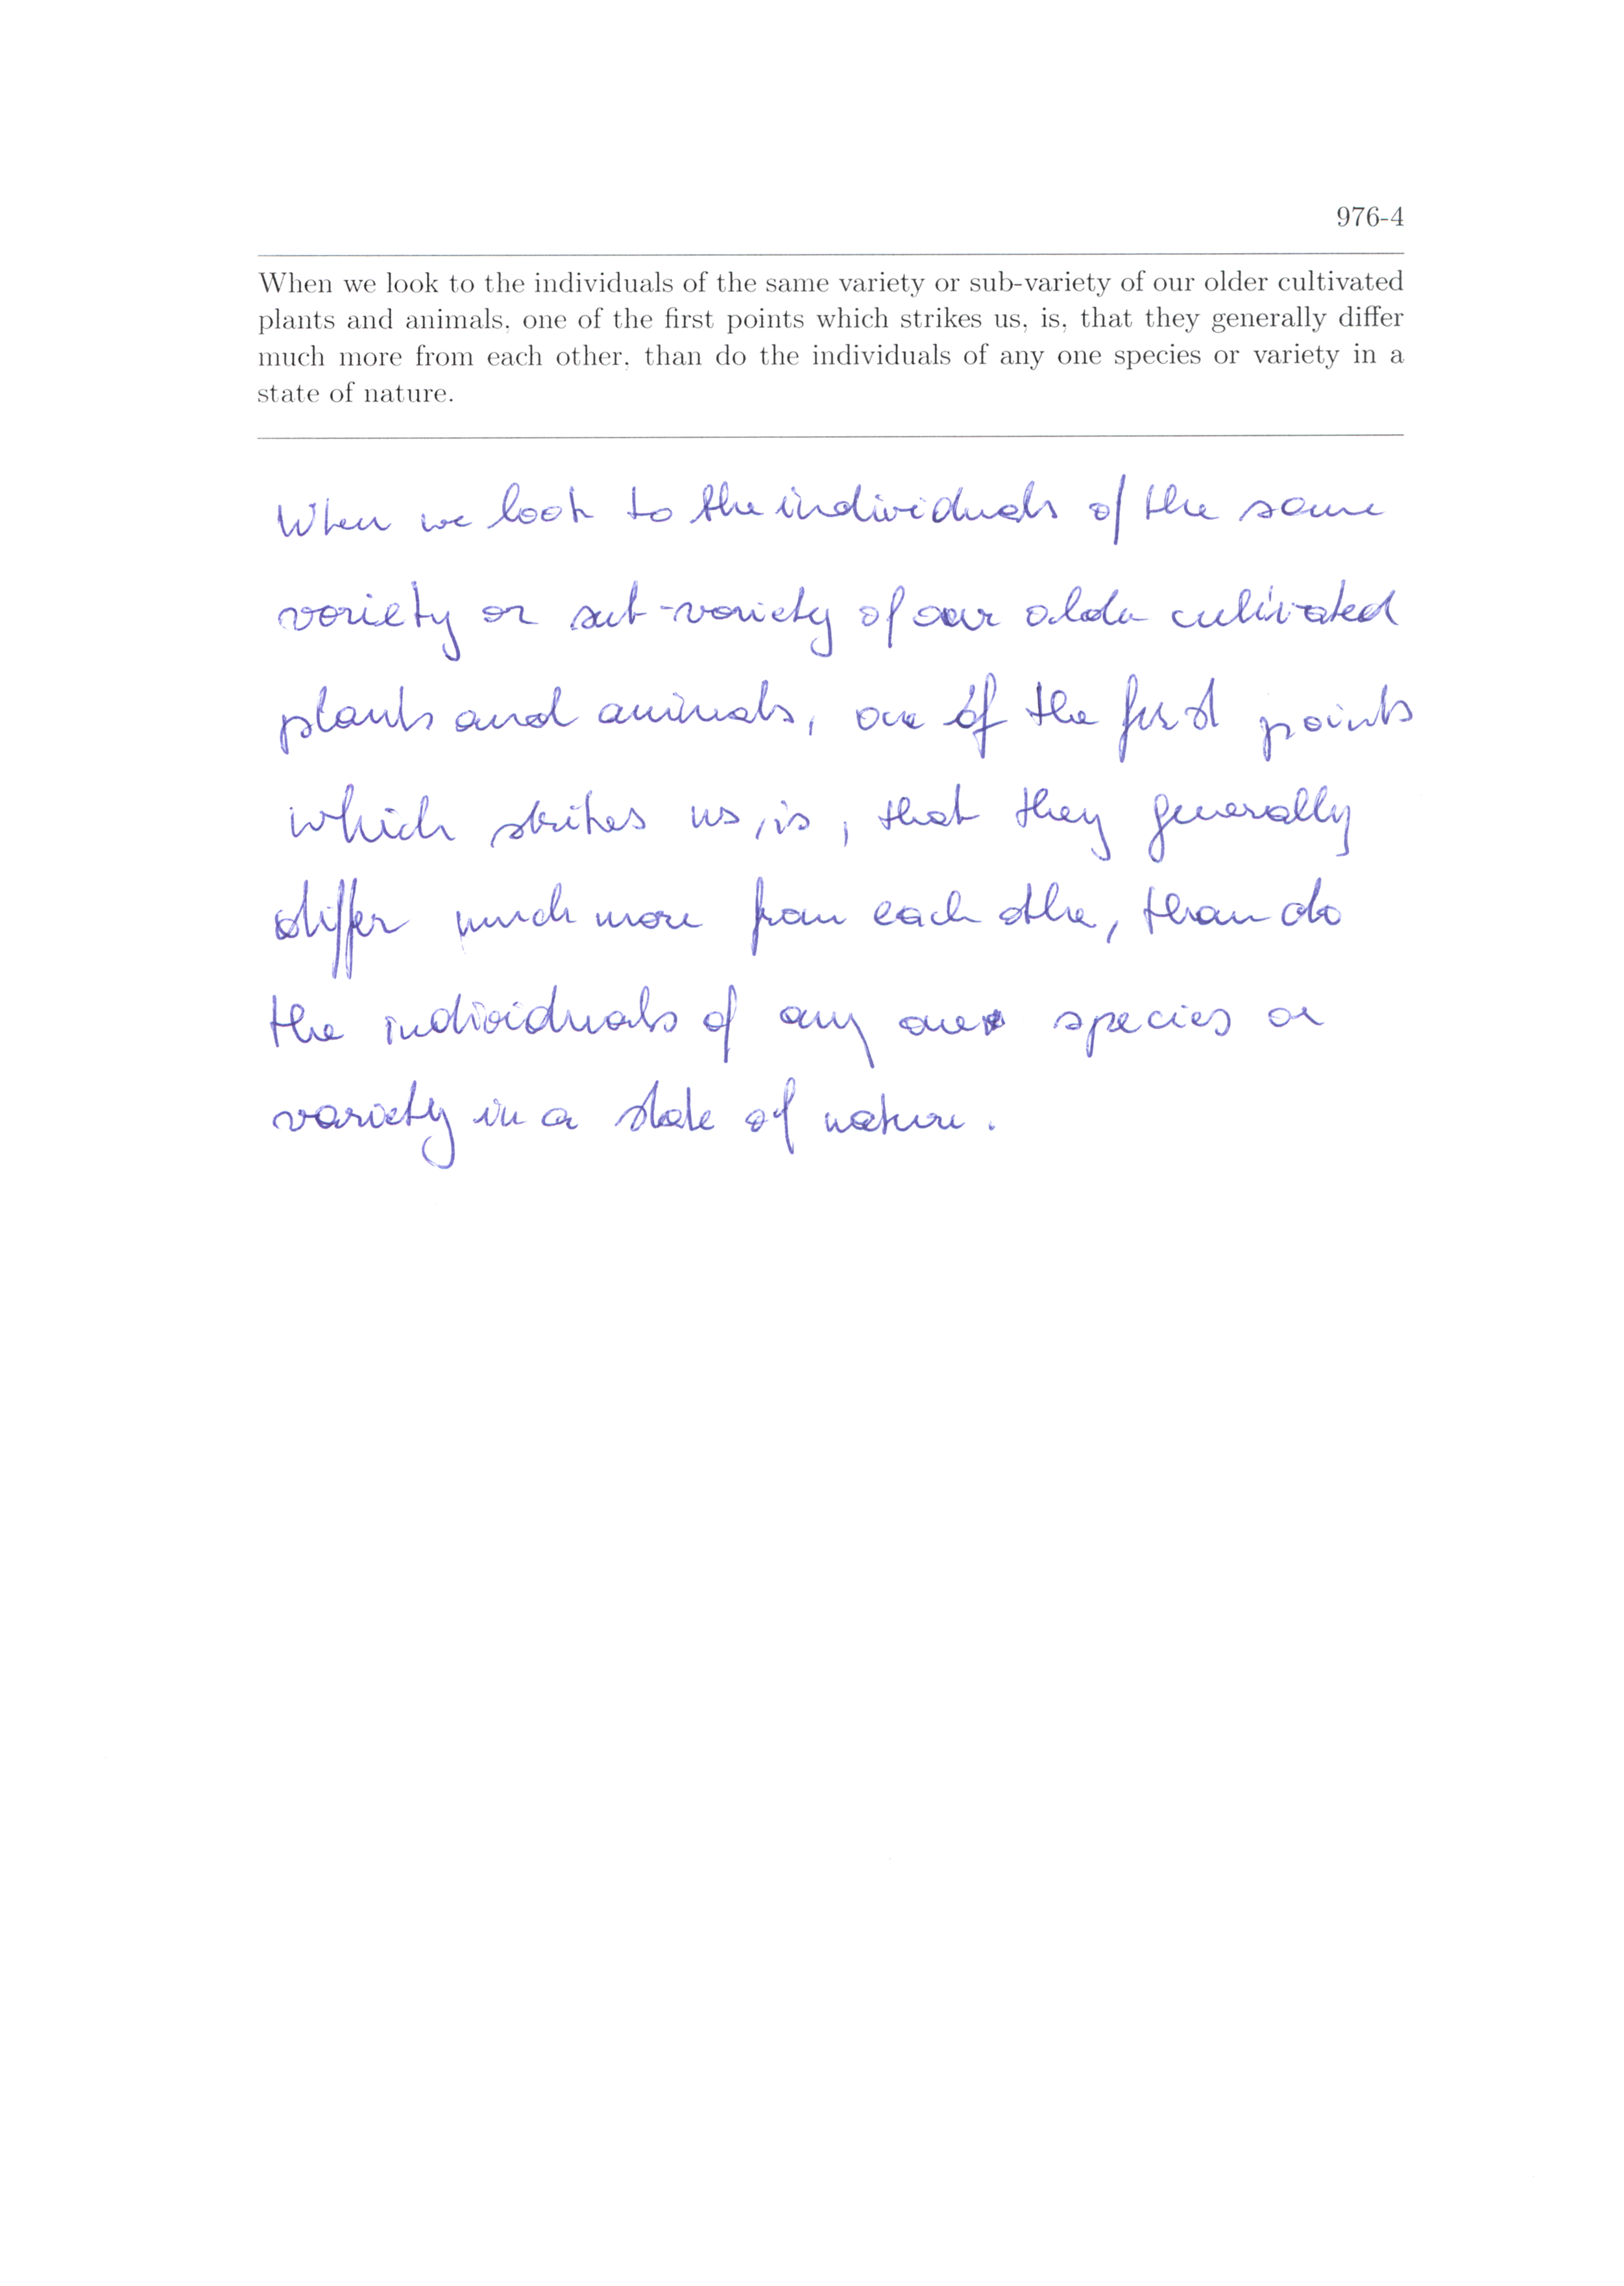 976-4
When we look to the individuals of the same variety or sub-variety of our older cultivated
plants and animals, one of the first points which strikes us, is, that they generally differ
much more from each other, than do the individuals of any one species or variety in a
state of nature.
When we look to the individuals of the same
variety or sub-variety of our older cultivated
plants and animals, one of the first points
which strikes us, is, that they generally
differ much more from each other, than do
the individuals of any one species or
variety in a state of nature.